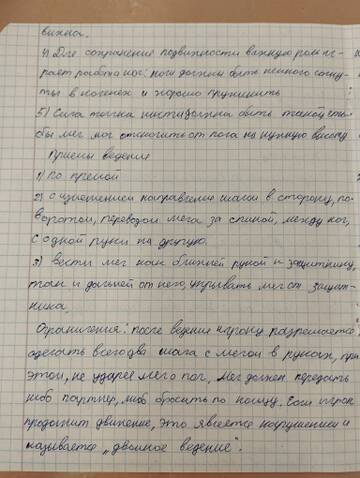 вижна.
4) Для сохранение подвижности важную роль иг-
рает работа ног, ноги должны быть немного согну-
ты в коленех и хорошо пружинить
5) Сила толчка кисти должна быть такой что
бы мяч мог отскочить от пола на нужную высоту
Приемы ведения
1) по прямой
2) с изменением направления шагом в сторону, по-
воротом, переводом мяча за спиной, между ног,
с одной руки на другую.
3) вести мяч как ближней рукой к защитнику,
так и дальней от него, укрывать мяч от защит-
ника.
Ограничения: после ведения игроку разрешается
сделать всего два шага с мячом в руках, при
этом, не ударяя мяч о пол, Мяч должен передать
либо партнёр, либо бросить по кольцу. Если игрок
продолжит движение, это является нарушением и
называется „двойное ведение".